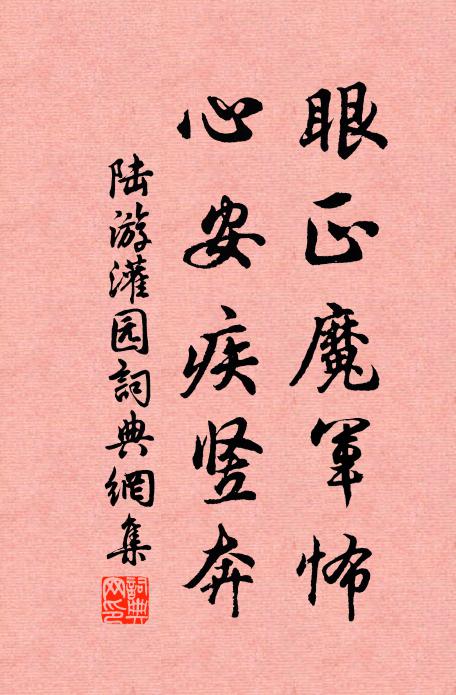 眼正魔军怖
心安疾竖奔
陆游灌园詞典網集
詞典网印